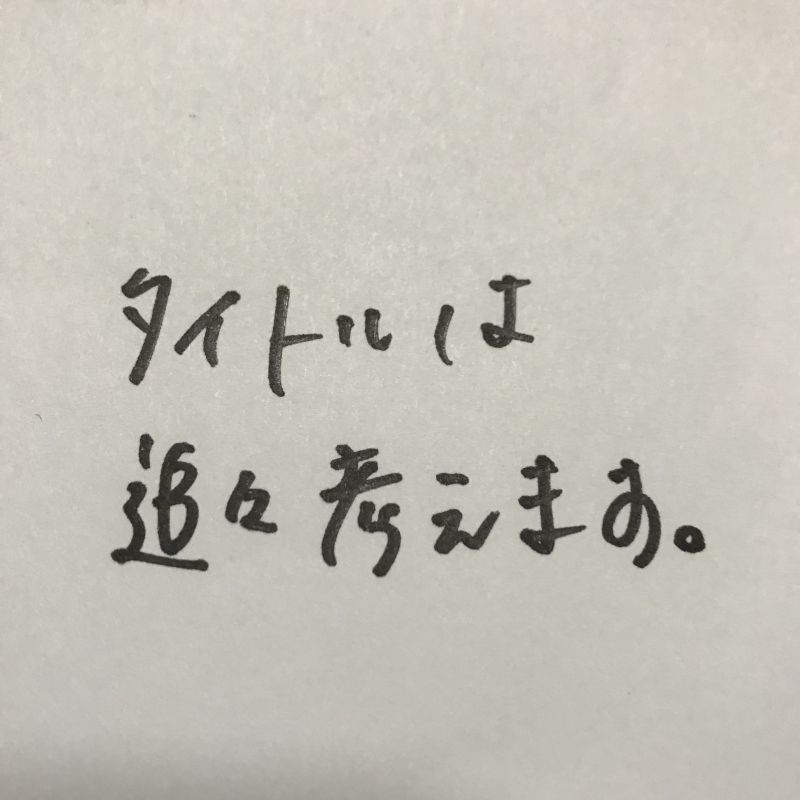 タイトルは
追々考えます。